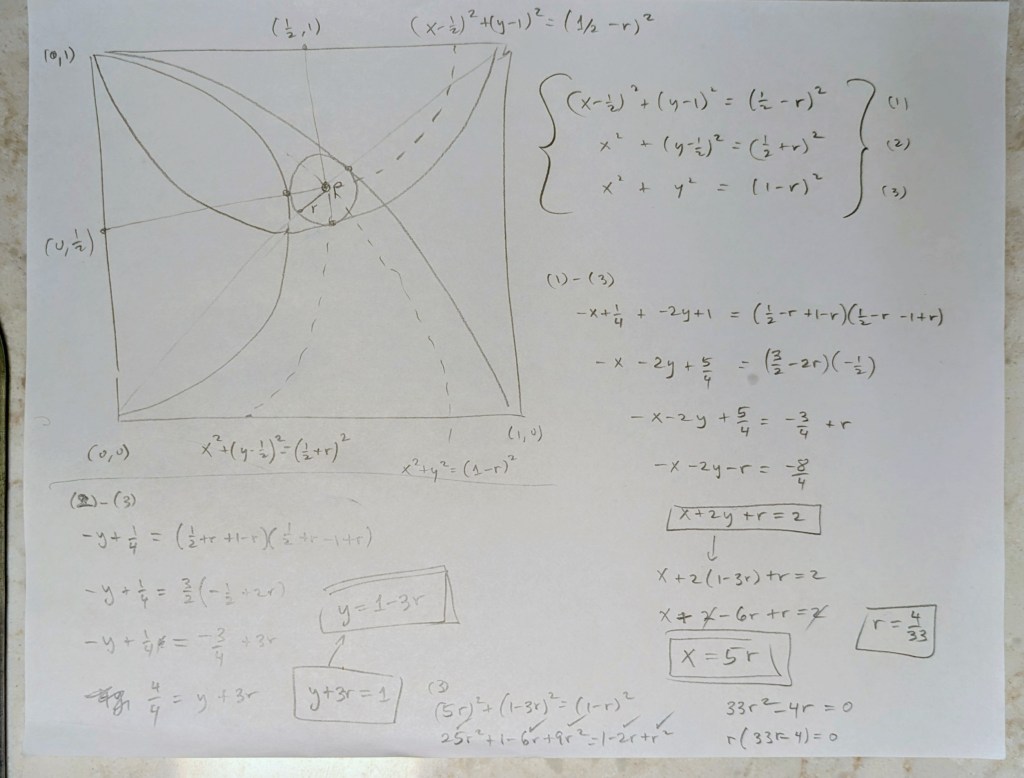 (½,1)
(x-½)²+(y-1)²=(1/2-r)²
(0,1)
R
r
(0,½)
(0,0)
(1,0)
x²+(y-½)²=(½+r)²
x²+y²=(1-r)²
(x-½)²+(y-1)²=(½-r)² (1)
x²+(y-½)²=(½+r)² (2)
x²+y²=(1-r)² (3)
(1)-(3)
-x+¼+-2y+1=(½-r+1-r)(½-r-1+r)
-x-2y+5/4=(3/2-2r)(-½)
-x-2y+5/4=-3/4+r
-x-2y-r=-8/4
x+2y+r=2
↓
x+2(1-3r)+r=2
x+2-6r+r=2
x=5r
(2)-(3)
-y+¼=(½+r+1-r)(½+r-1+r)
-y+¼=3/2(-½+2r)
-y+¼=-3/4+3r
4/4=y+3r
y+3r=1
y=1-3r
(3)
(5r)²+(1-3r)²=(1-r)²
25r²+1-6r+9r²=1-2r+r²
33r²-4r=0
r(33r-4)=0
r=4/33